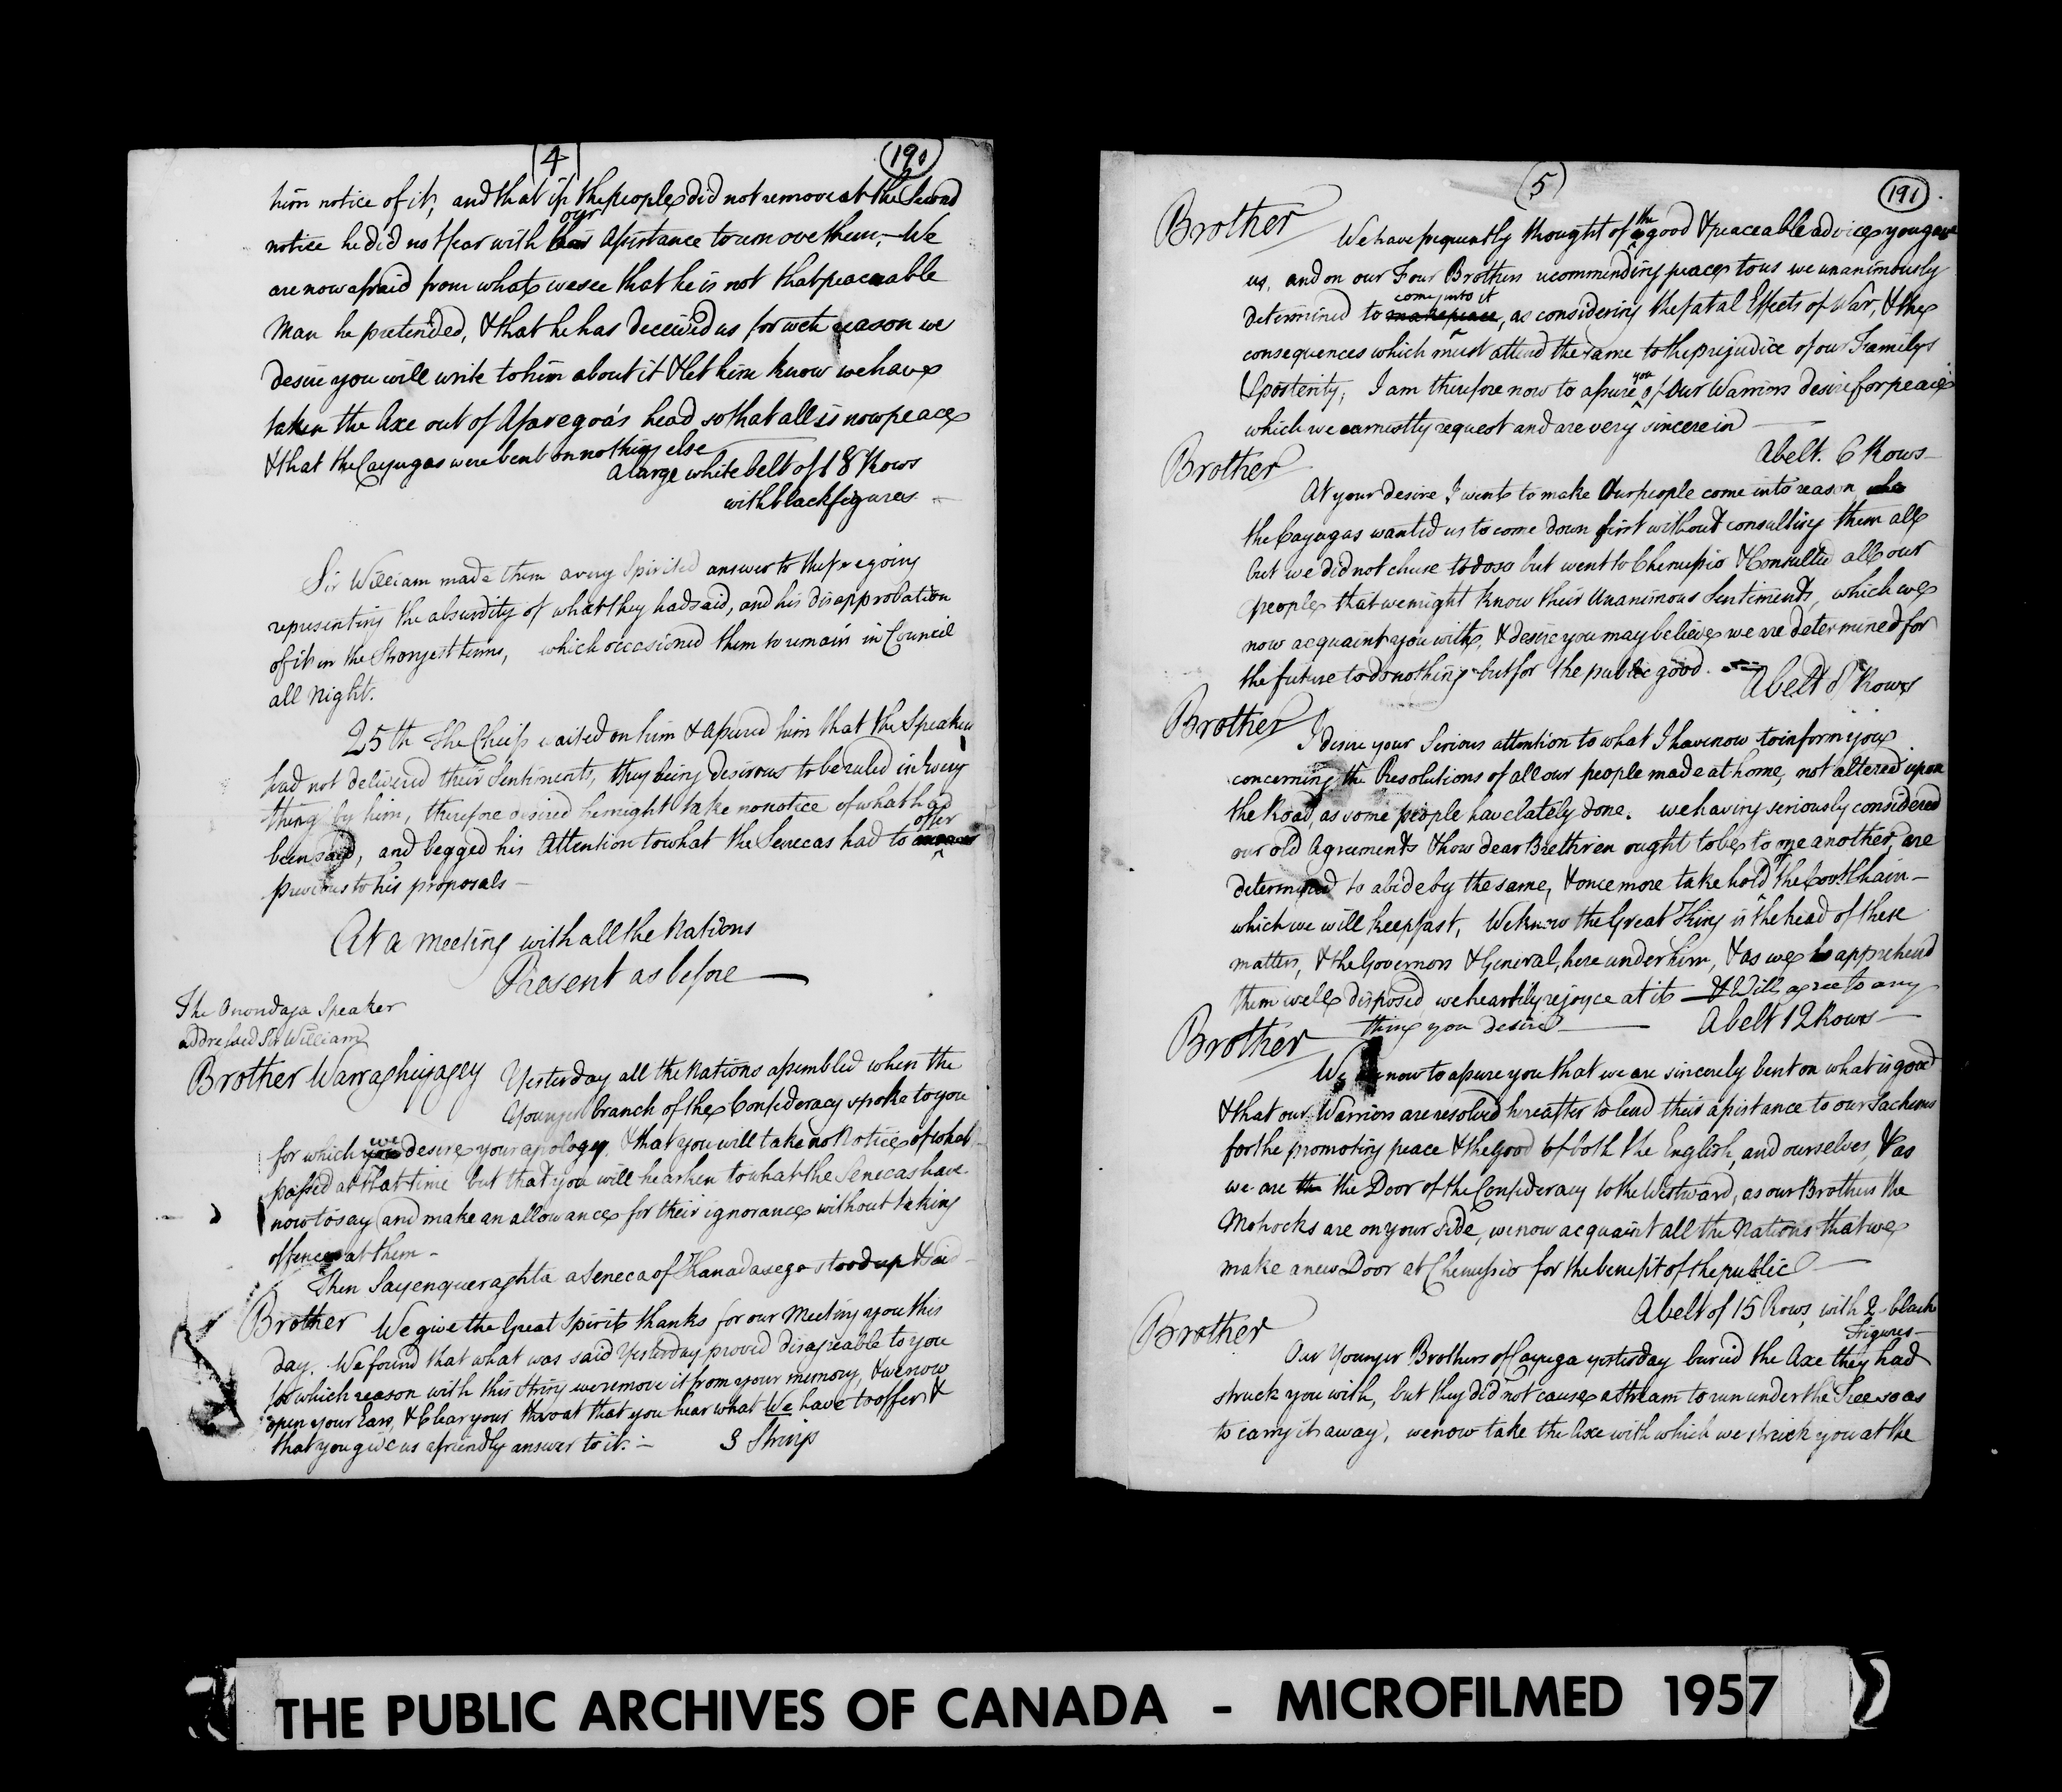 4
190
him notice of it, and that if the people did not remove at the Second
our
notice he did not fear with his Assistance to remove them, - We
are now afraid from what we see that he is not that peaceable
Man he pretended, & that he has deceived us for wch reason we
desire you will write to him about it & let him know we have
taken the Axe out of Asaregoa's head so that all is now peace
& that the Cayugas were bent on nothing else
A large white belt of 18 Rows
with black figures -
Sir William made them a very Spirited answer to the foregoing
representing the absurdity of what they had said, and his disapprobation
of it in the Strongest terms, which occasioned them to remain in Council
all Night.
25th The Chiefs waited on him & assured him that the Speaker
had not delivered their Sentiments, they being desirous to be ruled in Every
thing by him, therefore desired he might take no notice of what had
offer
been said, and begged his Attention to what the Senecas had to
previous to his proposals -
At a Meeting with all the Nations
Present as before
The Onondaga Speaker
addressed Sir William
Brother Warraghiyagey Yesterday all the Nations assembled when the
Younger branch of the Confederacy spoke to you
we
for which you desire your apology, & that you will take no Notice of what
passed at that time but that you will hearken to what the Senecas have
now to say and make an allowance for their ignorance without taking
offence at them -
Then Sayenqueraghta a Seneca of Kanadasego stood up & said
Brother We give the Great Spirit thanks for our Meeting you this
day. We found that what was said Yesterday proved disagreable to you
for which reason with this String we remove it from your memory, & we now
open your Ears, & Clear your throat that you hear what We have to offer &
that you give us a friendly answer to it. - 3 Strings
5
191
Brother
the
We have frequently thought of good & peaceable advice you gave
us, and on our Four Brothers recommending peace to us we unanimously
come into it
determined to make peace, as considering the fatal Effects of War, & the
consequences which must attend the same to the prejudice of our Familys
you
& posterity; I am therefore now to assure of Our Warriors desire for peace
which we earnestly request and are very sincere in
A belt. 6 Rows -
Brother
At your desire I went to make Our people come into reason
the Cayugas wanted us to come down first without consulting them all
but we did not chuse to do so but went to Chenussio & Consulted all our
people that we might know their Unanimous Sentiments, which we
now acquaint you with, & desire you may believe we are determined for
the future to do nothing but for the public good.
A belt 8 Rows
Brother
I desire your Serious attention to what I have now to inform you
concerning the Resolutions of all our people made at home, not altered upon
the Road, as some people have lately done. we having seriously considered
our old Agreements & how dear Brethren ought to be to one another, are
of
determined to abide by the same, & once more take hold the Covt. Chain -
which we will keep fast, We know the Great King is the head of these
matters, & the Governors & General, here under him, & as we apprehend
them well disposed, we heartily rejoyce at it & Will agree to any
thing you desire
A belt 12 Rows -
Brother
We are now to assure you that we are sincerely bent on what is good
& that our Warriors are resolved hereafter to lend their assistance to our Sachems
for the promoting peace & the Good of both the English, and ourselves, & as
we are the the Door of the Confederacy to the Westward, as our Brothers the
Mohocks are on your Side, we now acquaint all the Nations that we
make a new Door at Chenussio for the benefit of the public
A belt of 15 Rows, with 2 black
Figures -
Brother
Our Younger Brothers of Cayuga yesterday buried the Axe they had
struck you with, but they did not cause a Stream to run under the Tree so as
to carry it away, we now take the Axe with which we struck you at the
THE PUBLIC ARCHIVES OF CANADA - MICROFILMED 1957